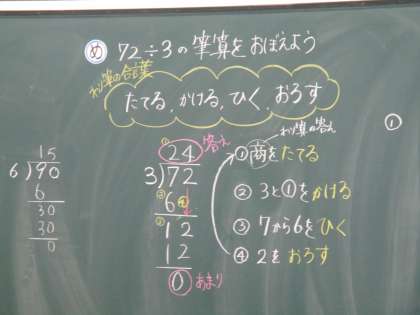 め 72÷3の筆算をおぼえよう
わり算の合言葉
たてる、かける、ひく、おろす
15
6)90
6
30
30
0
24 答え
3)72
6
12
12
0 あまり
わり算の答え
①商をたてる
②3と①をかける
③7から6をひく
④2をおろす
①